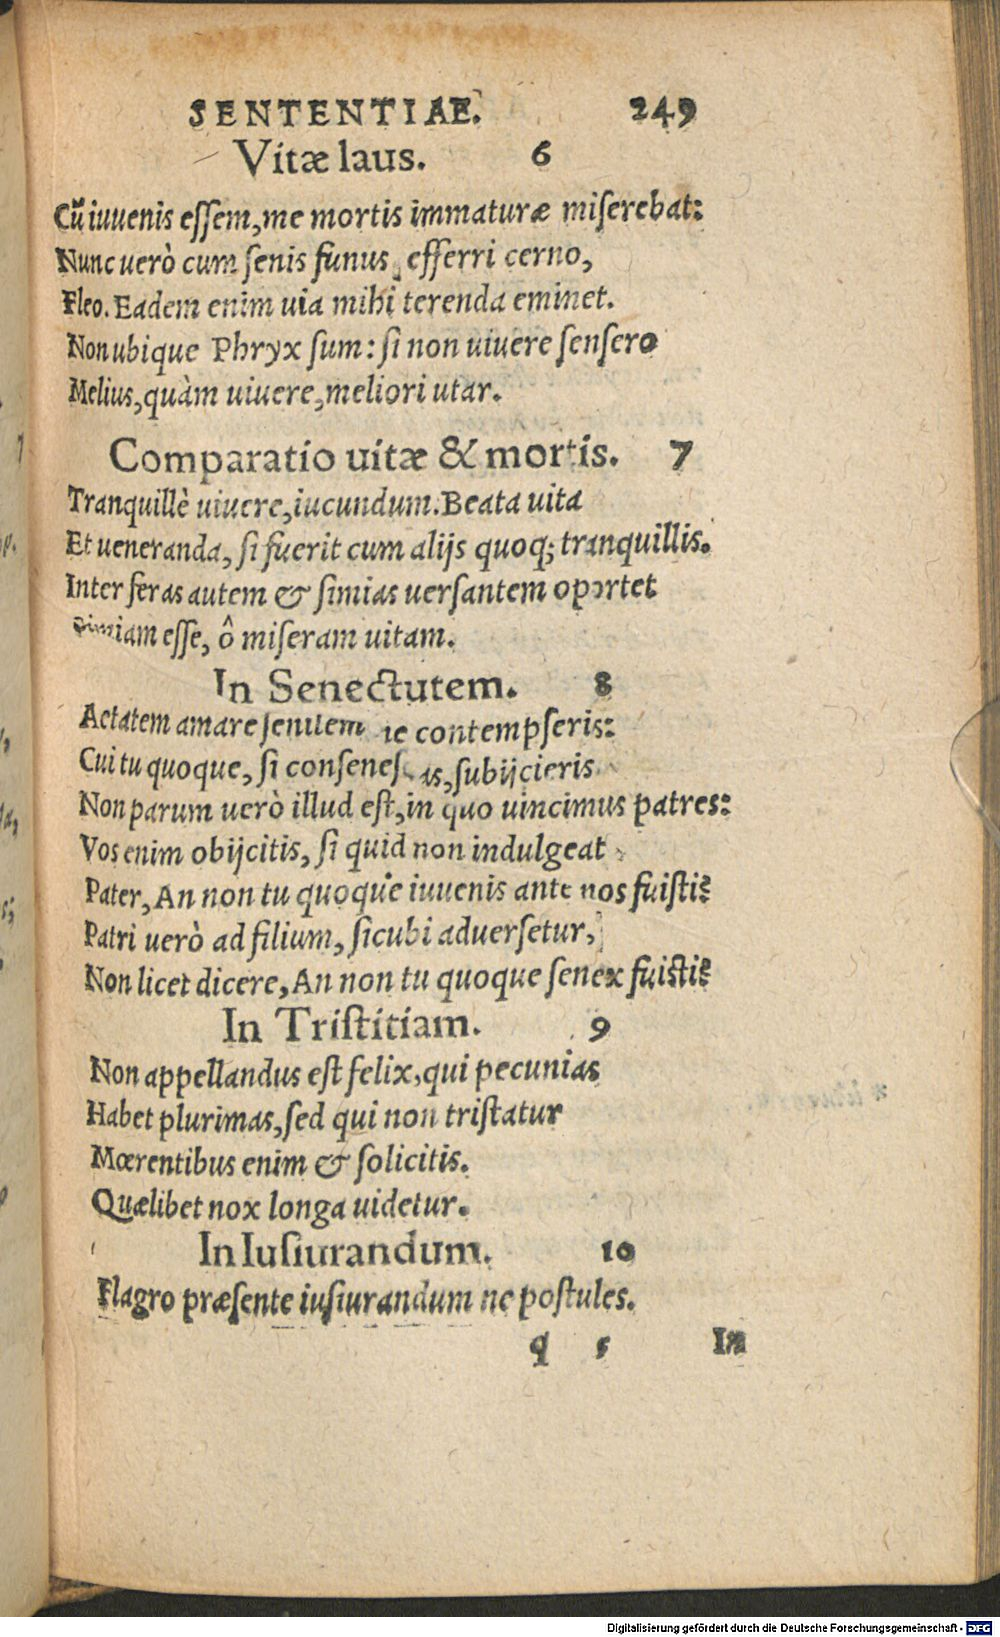 SENTENTIAE. 249
Vitæ laus. 6
Cũ iuuenis essem, me mortis immaturæ miserebat:
Nunc uerò cum senis funus efferri cerno,
Fleo. Eadem enim uia mihi terenda eminet.
Non ubique Phryx sum: si non uiuere sensero
Melius, quàm uiuere, meliori utar.
Comparatio uitæ & mortis. 7
Tranquillè uiuere, iucundum. Beata uita
Et ueneranda, si fuerit cum alijs quoq; tranquillis.
Inter feras autem & simias uersantem oportet
Simiam esse, ô miseram uitam.
In Senectutem. 8
Aetatem amare senilem ne contempseris:
Cui tu quoque, si consenescas, subijcieris
Non parum uerò illud est, in quo uincimus patres:
Vos enim obijcitis, si quid non indulgeat
Pater, An non tu quoque iuuenis ante nos fuisti?
Patri uerò ad filium, sicubi aduersetur,
Non licet dicere, An non tu quoque senex fuisti?
In Tristitiam. 9
Non appellandus est felix, qui pecunias
Habet plurimas, sed qui non tristatur
Mœrentibus enim & solicitis.
Quælibet nox longa uidetur.
In Iusiurandum. 10
Flagro præsente iusiurandum ne postules.
q 5 In
Digitalisierung gefördert durch die Deutsche Forschungsgemeinschaft - DFG